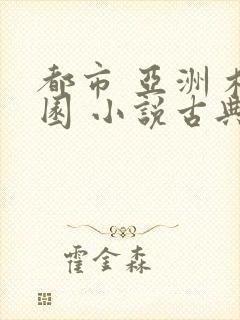 都市 亞洲
園 小說古典
霍金森